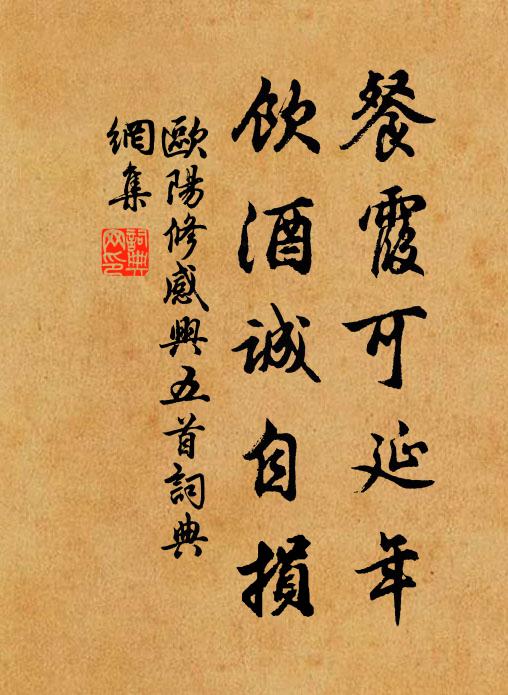 餐霞可延年
飲酒誠自損
歐陽修感興五首詞典
網集
詞典
网印